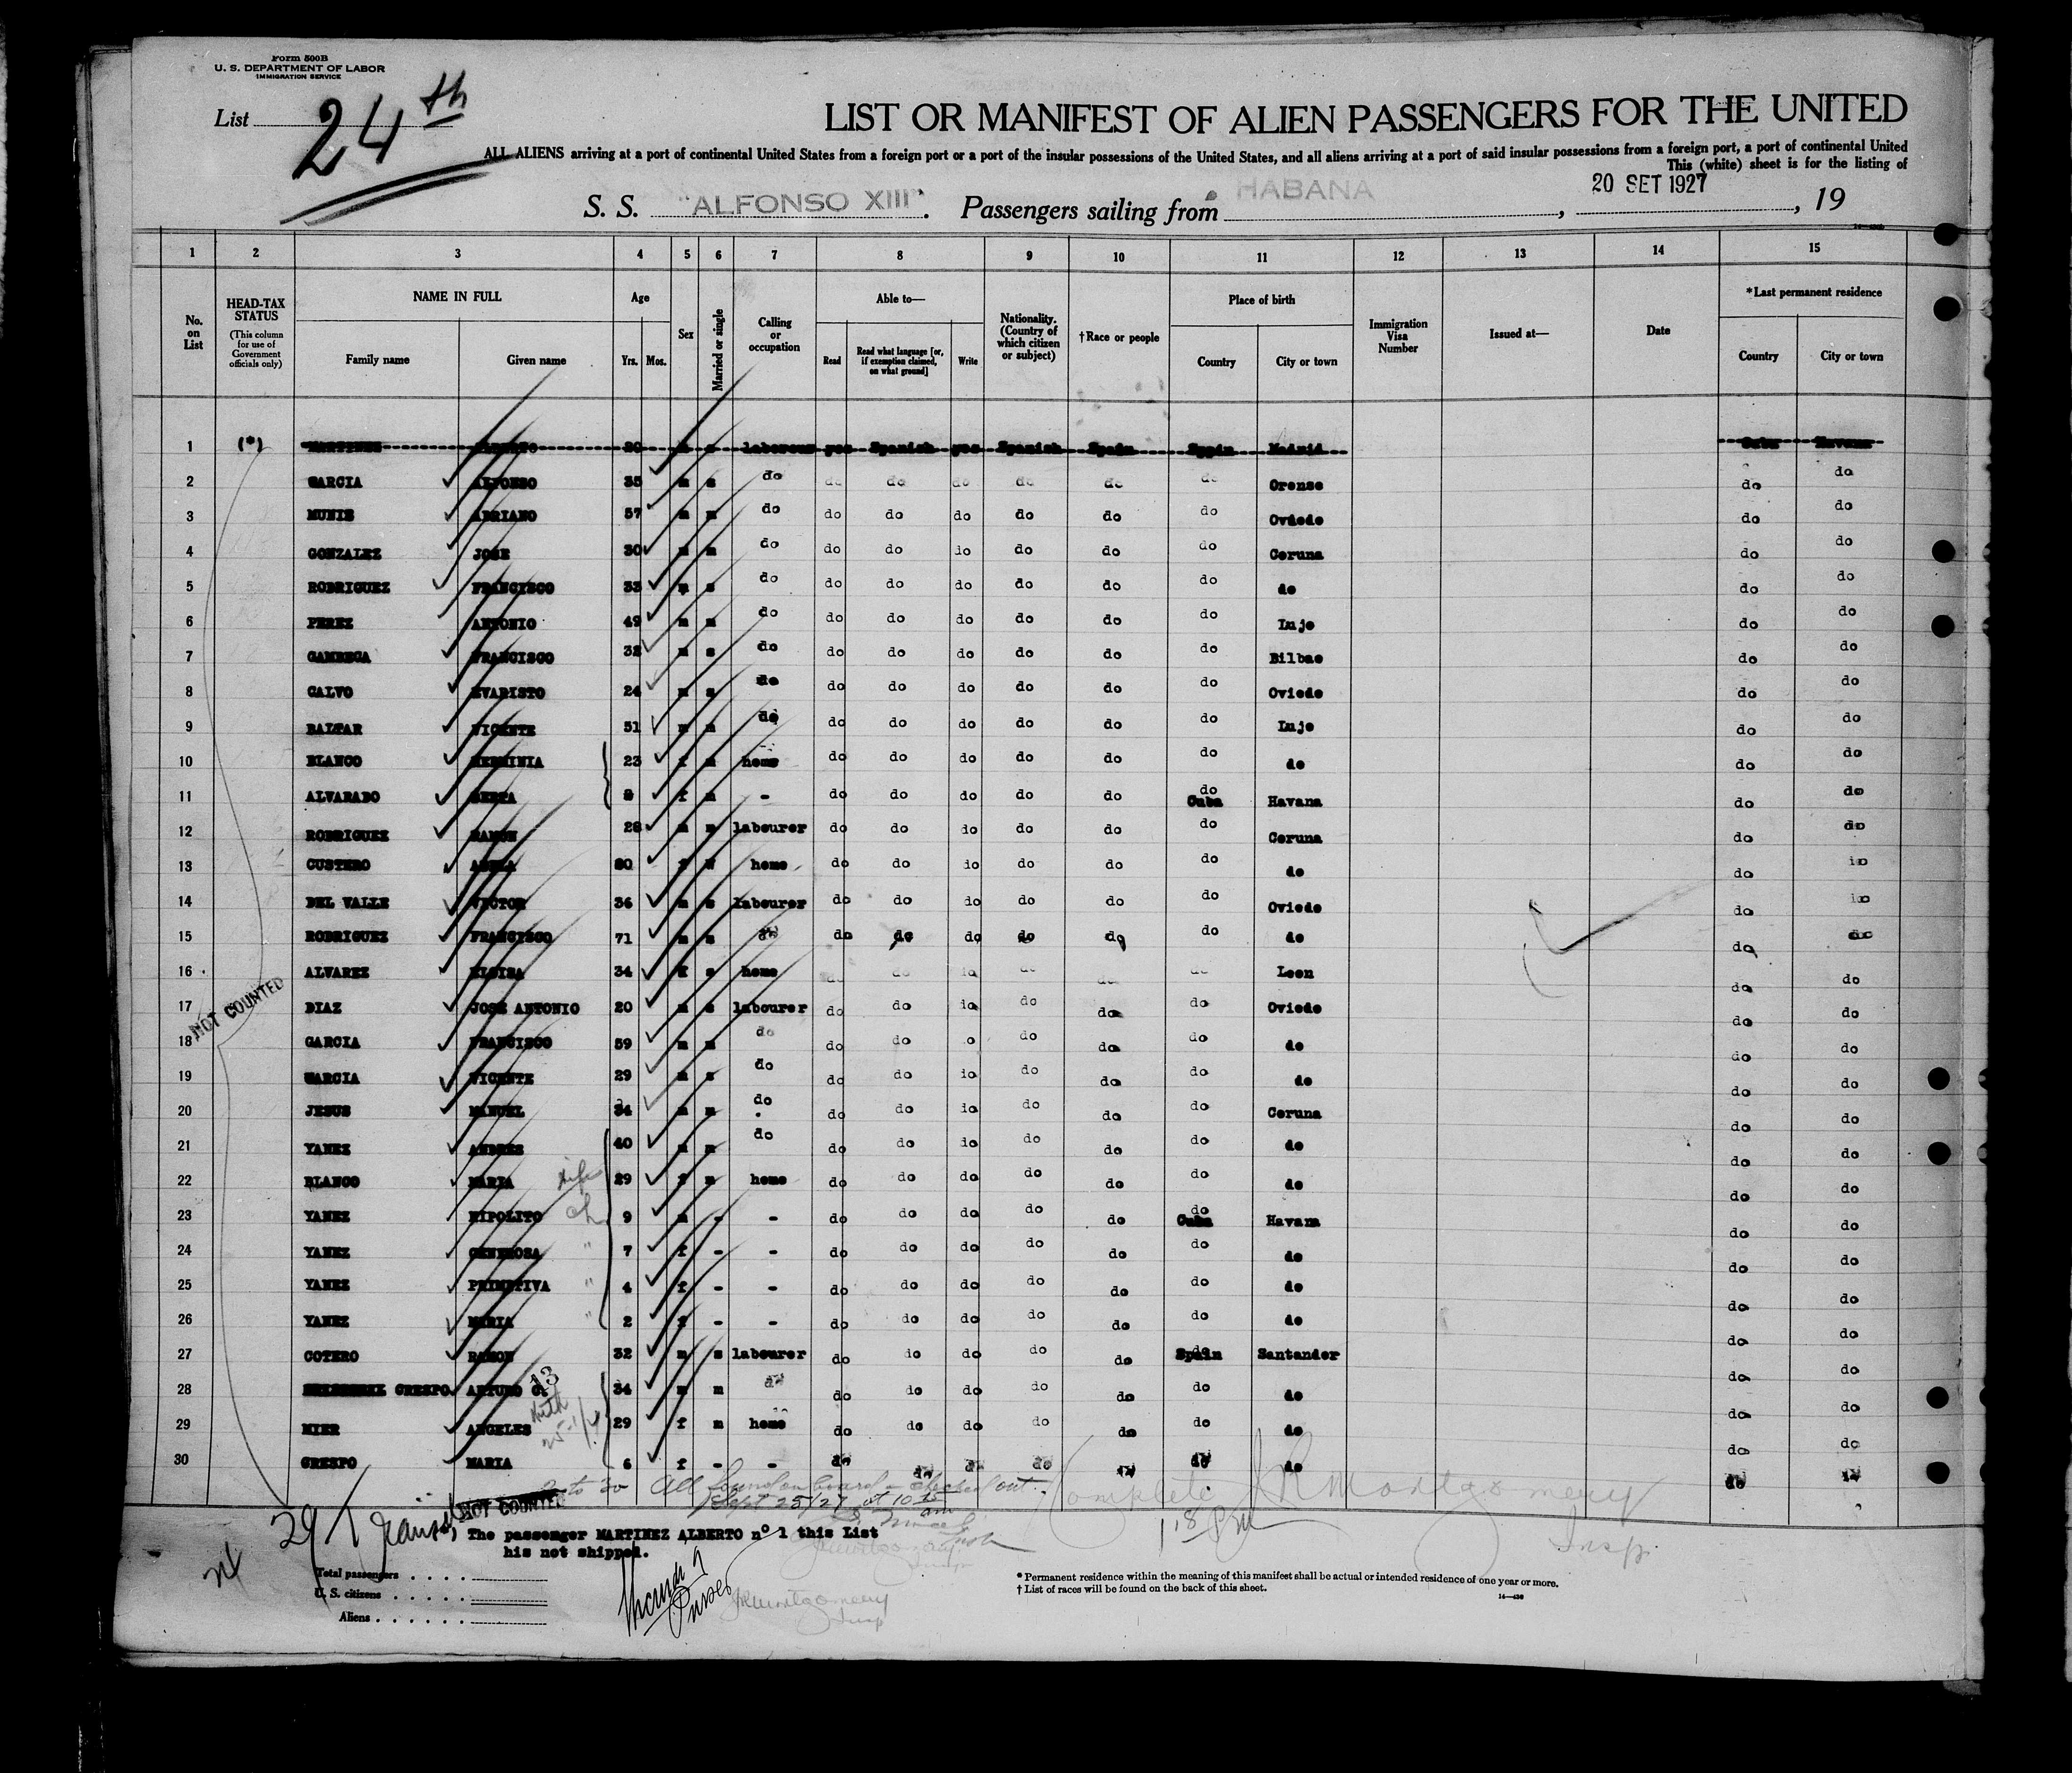 Form 500B
U. S. DEPARTMENT OF LABOR
IMMIGRATION SERVICE
List 24th
LIST OR MANIFEST OF ALIEN PASSENGERS FOR THE UNITED
ALL ALIENS arriving at a port of continental United States from a foreign port or a port of the insular possessions of the United States, and all aliens arriving at a port of said insular possessions from a foreign port, a port of continental United
This (white) sheet is for the listing of
S. S. "ALFONSO XIII". Passengers sailing from HABANA, 20 SET 1927, 19
1 2 3 4 5 6 7 8 9 10 11 12 13 14 15
No. on List HEAD-TAX STATUS (This column for use of Government officials only) NAME IN FULL Family name Given name Age Yrs. Mos. Sex Married or single Calling or occupation Able to— Read Read what language [or, if exemption claimed, on what ground] Write Nationality. (Country of which citizen or subject) †Race or people Place of birth Country City or town Immigration Visa Number Issued at— Date *Last permanent residence Country City or town
1 (*) MARTINEZ ALBERTO 20 m s labourer yes Spanish yes Spanish Spain Spain Madrid Cuba Havana
2 GARCIA ALFONSO 35 m s do do do do do do do Orense do do
3 MUNIS ADRIANO 57 m m do do do do do do do Oviedo do do
4 GONZALEZ JOSE 30 m m do do do do do do do Coruna do do
5 RODRIGUEZ FRANCISCO 33 m s do do do do do do do do do do
6 PEREZ ANTONIO 49 m m do do do do do do do Lujo do do
7 GAMBEGA FRANCISCO 32 m s do do do do do do do Bilbao do do
8 CALVO EVARISTO 24 m s do do do do do do do Oviedo do do
9 BALTAR VICENTE 51 m m do do do do do do do Lujo do do
10 BLANCO HERMINIA 23 f m home do do do do do do do do do
11 ALVARADO BERTA f m - do do do do do do Cuba Havana do do
12 RODRIGUEZ RAMON 28 m m labourer do do do do do do Coruna do do
13 CUSTERO ADELA f home do do do do do do do do do
14 DEL VALLE VICTOR 36 m s labourer do do do do do do Oviedo do do
15 RODRIGUEZ FRANCISCO 71 m m do do do do do do do do do do
16 ALVAREZ ELOISA 34 f s home do do do do do do Leon do do
17 DIAZ JOSE ANTONIO 20 m s labourer do do do do do do Oviedo do do
18 GARCIA FRANCISCO 59 m m do do do do do do do do do do
19 GARCIA VICENTE 29 m s do do do do do do do do do do
20 JESUS MANUEL 34 m m do do do do do do do Coruna do do
21 YANEZ ANDRES 40 m m do do do do do do do do do do
22 BLANCO MARIA wife 29 f m home do do do do do do do do do
23 YANEZ HIPOLITO ch 9 m - - do do do do do do Cuba Havana do do
24 YANEZ GENEROSA " 7 f - - do do do do do do do do do
25 YANEZ PRIMITIVA " 4 f - - do do do do do do do do do
26 YANEZ MARIA " 2 f - - do do do do do do do do do
27 COTERO RAMON 32 m s labourer do do do do do Spain Santander do do
28 CRESPO ARTURO G. 13 34 m m do do do do do do do do do do
29 MIER ANGELES 29 f m home do do do do do do do do do
30 CRESPO MARIA 6 f - - do do do do do do do do do
NOT COUNTED
to 30 All found on board & checked out
Sept 25/27 at 10 15 am
Complete JR Montgomery
Insp.
NOT COUNTED
29/T Transit
*) The passenger MARTINEZ ALBERTO nº 1 this List
his not shipped.
Purser
JR Montgomery
Insp
Total passengers
U. S. citizens
Aliens
* Permanent residence within the meaning of this manifest shall be actual or intended residence of one year or more.
† List of races will be found on the back of this sheet.
14—430